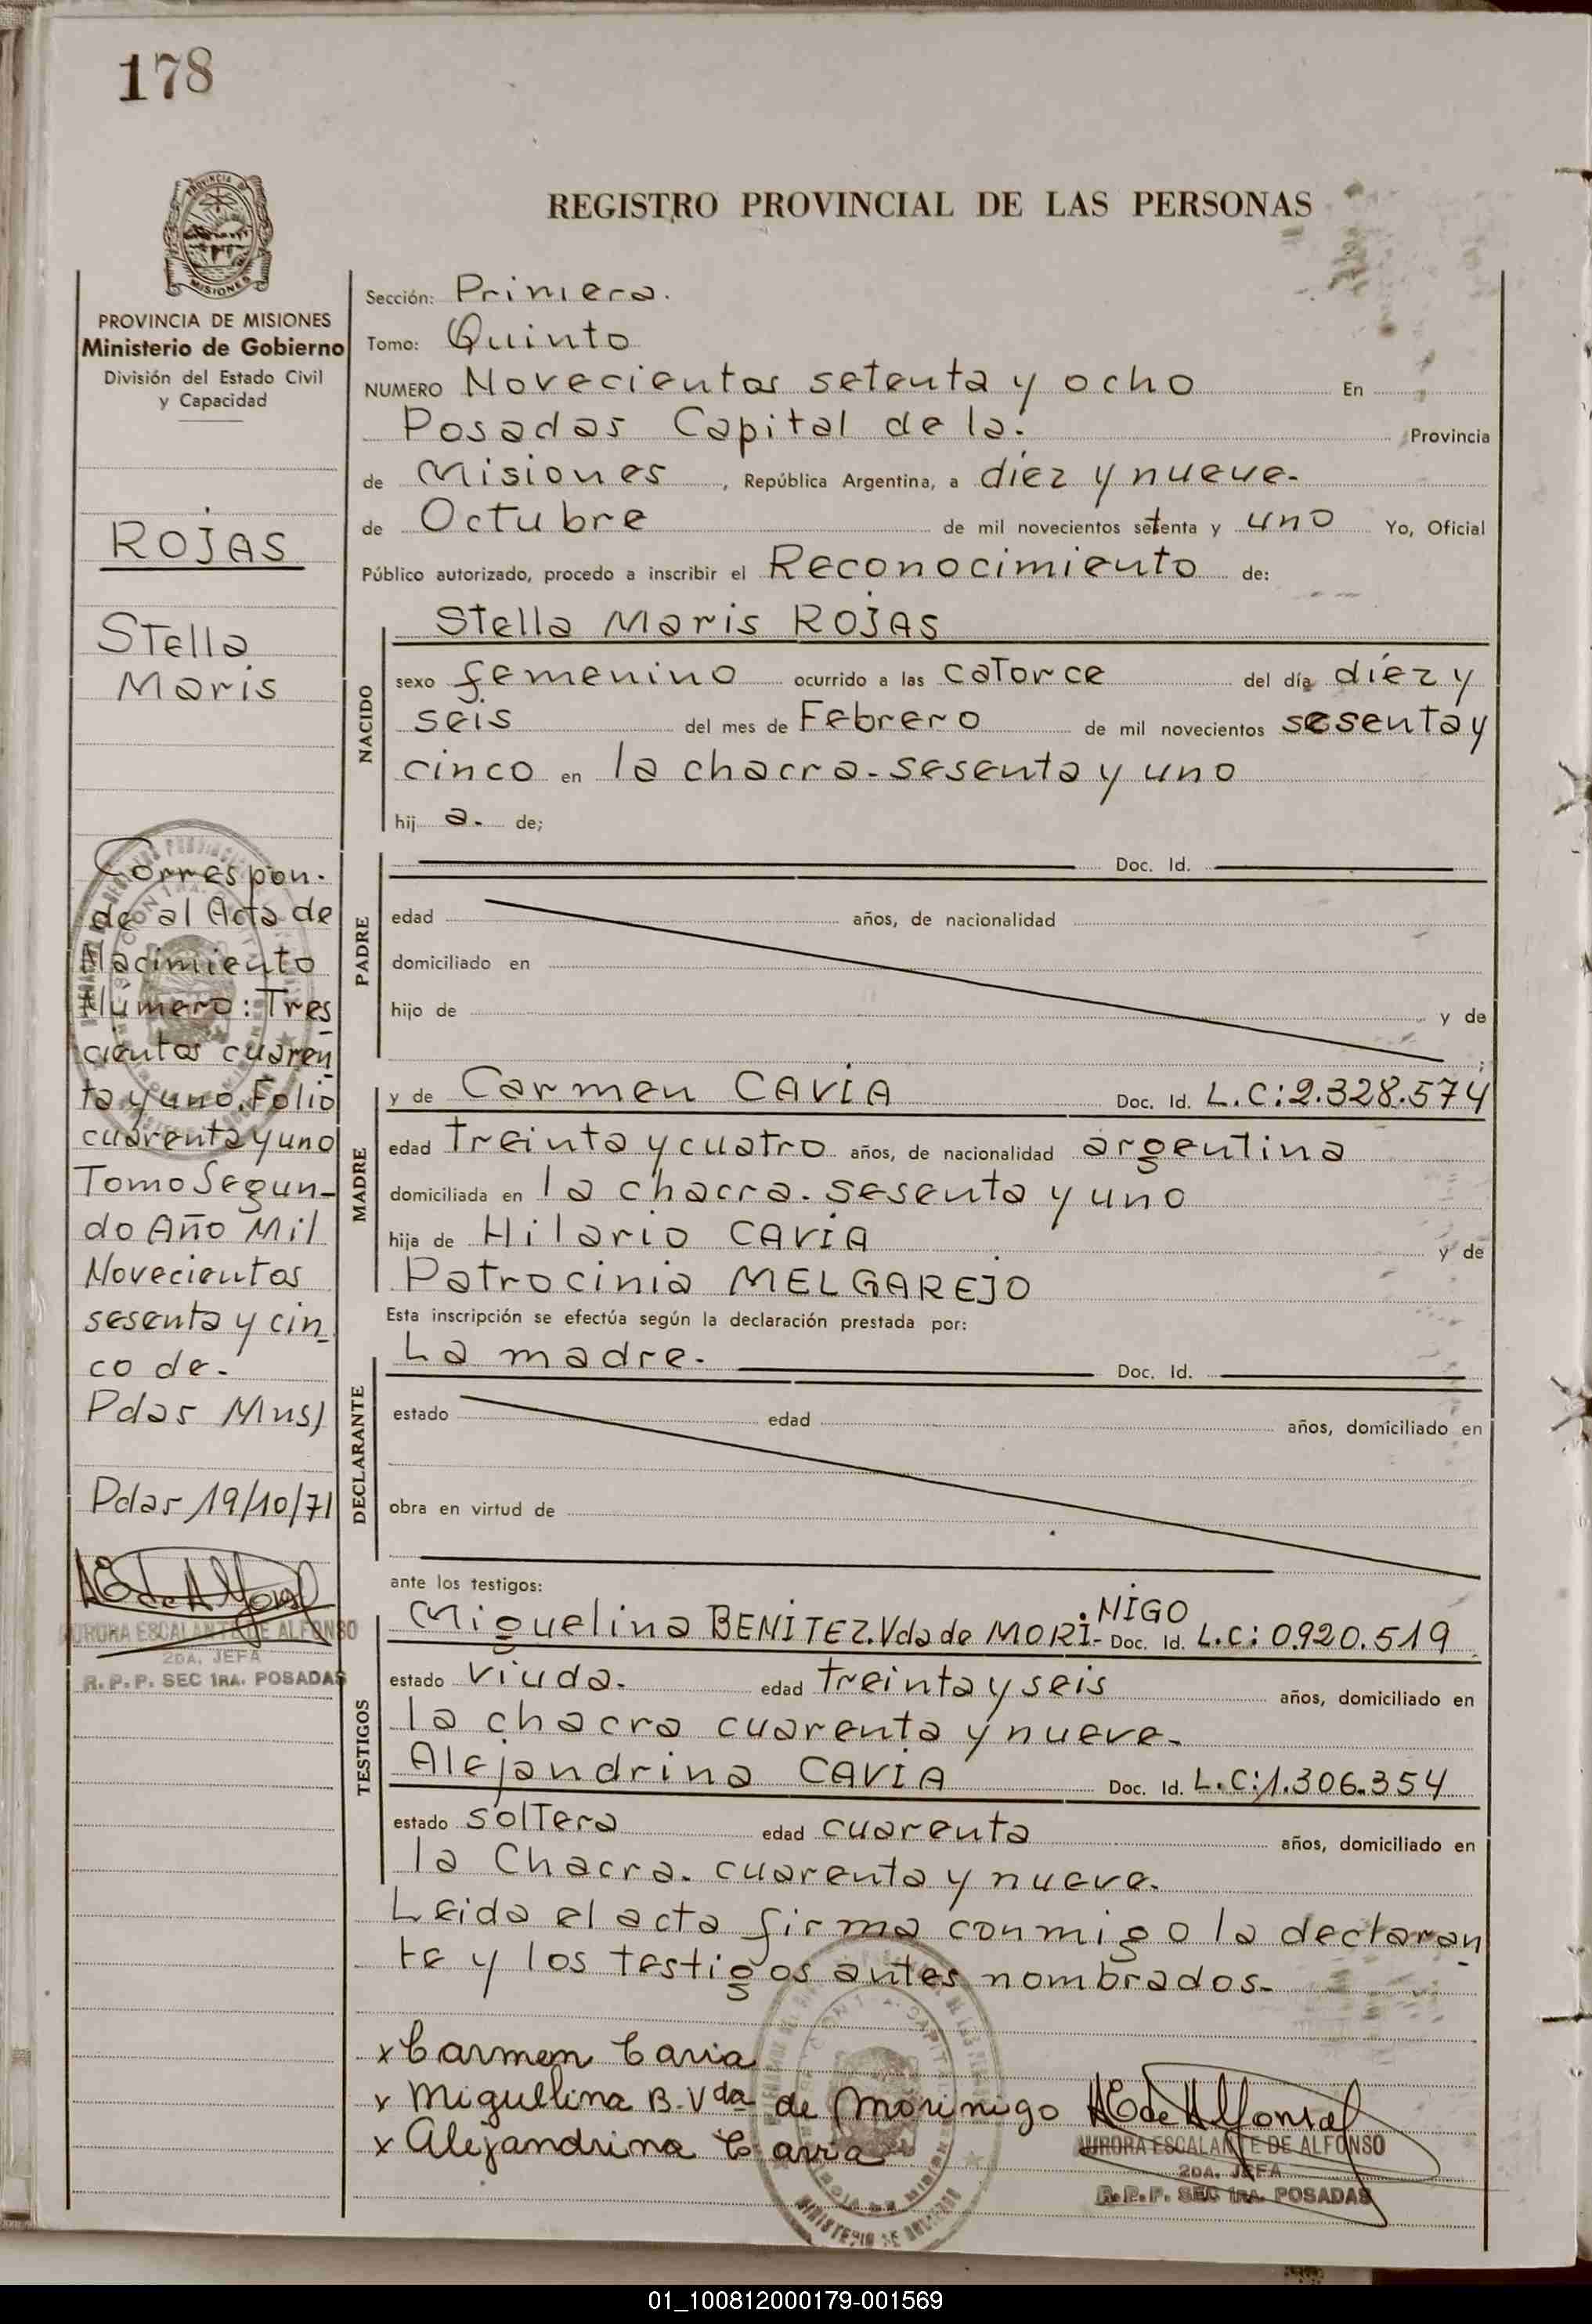 178
REGISTRO PROVINCIAL DE LAS PERSONAS
PROVINCIA DE MISIONES
Ministerio de Gobierno
División del Estado Civil
y Capacidad
ROJAS
Stella
Maris
Correspon-
de al Acta de
Nacimiento
Número: Tres
cientos cuaren
ta y uno. Folio
cuarenta y uno
Tomo Segun-
do Año Mil
Novecientos
sesenta y cin
co de-
Pdas Mns)
Pdas 19/10/71
AEde Alfonso
AURORA ESCALANTE DE ALFONSO
2DA. JEFA
R. P. P. SEC 1RA. POSADAS
Sección: Primera.
Tomo: Quinto
NUMERO Novecientos setenta y ocho En
Posadas Capital de la. Provincia
de Misiones, República Argentina, a diez y nueve-
de Octubre de mil novecientos setenta y uno Yo, Oficial
Público autorizado, procedo a inscribir el Reconocimiento de:
NACIDO
Stella Maris ROJAS
sexo femenino ocurrido a las catorce del día diez y
seis del mes de Febrero de mil novecientos sesenta y
cinco en la chacra- sesenta y uno
hij a. de;
PADRE
Doc. Id.
edad años, de nacionalidad
domiciliado en
hijo de y de
;
MADRE
y de Carmen CAVIA Doc. Id. L.C: 2.328.574
edad treinta y cuatro años, de nacionalidad argentina
domiciliada en la chacra. sesenta y uno
hija de Hilario CAVIA y de
Patrocinia MELGAREJO
Esta inscripción se efectúa según la declaración prestada por:
DECLARANTE
La madre- Doc. Id.
estado edad años, domiciliado en
obra en virtud de
ante los testigos:
TESTIGOS
NIGO
Miguelina BENITEZ. Vda de MORI- Doc. Id. L.C: 0.920.519
estado viuda. edad treinta y seis años, domiciliado en
la chacra cuarenta y nueve-
Alejandrina CAVIA Doc. Id. L.C: 1.306.354
estado soltera edad cuarenta años, domiciliado en
la Chacra. cuarenta y nueve.
Leida el acta firma conmigo la declaran
te y los testigos antes nombrados-
x Carmen Cavia
x Miguelina B. Vda de Morinigo
x Alejandrina Cavia
AEde Alfonso
AURORA ESCALANTE DE ALFONSO
2DA. JEFA
R. P. P. SEC 1RA. POSADAS
01_100812000179-001569